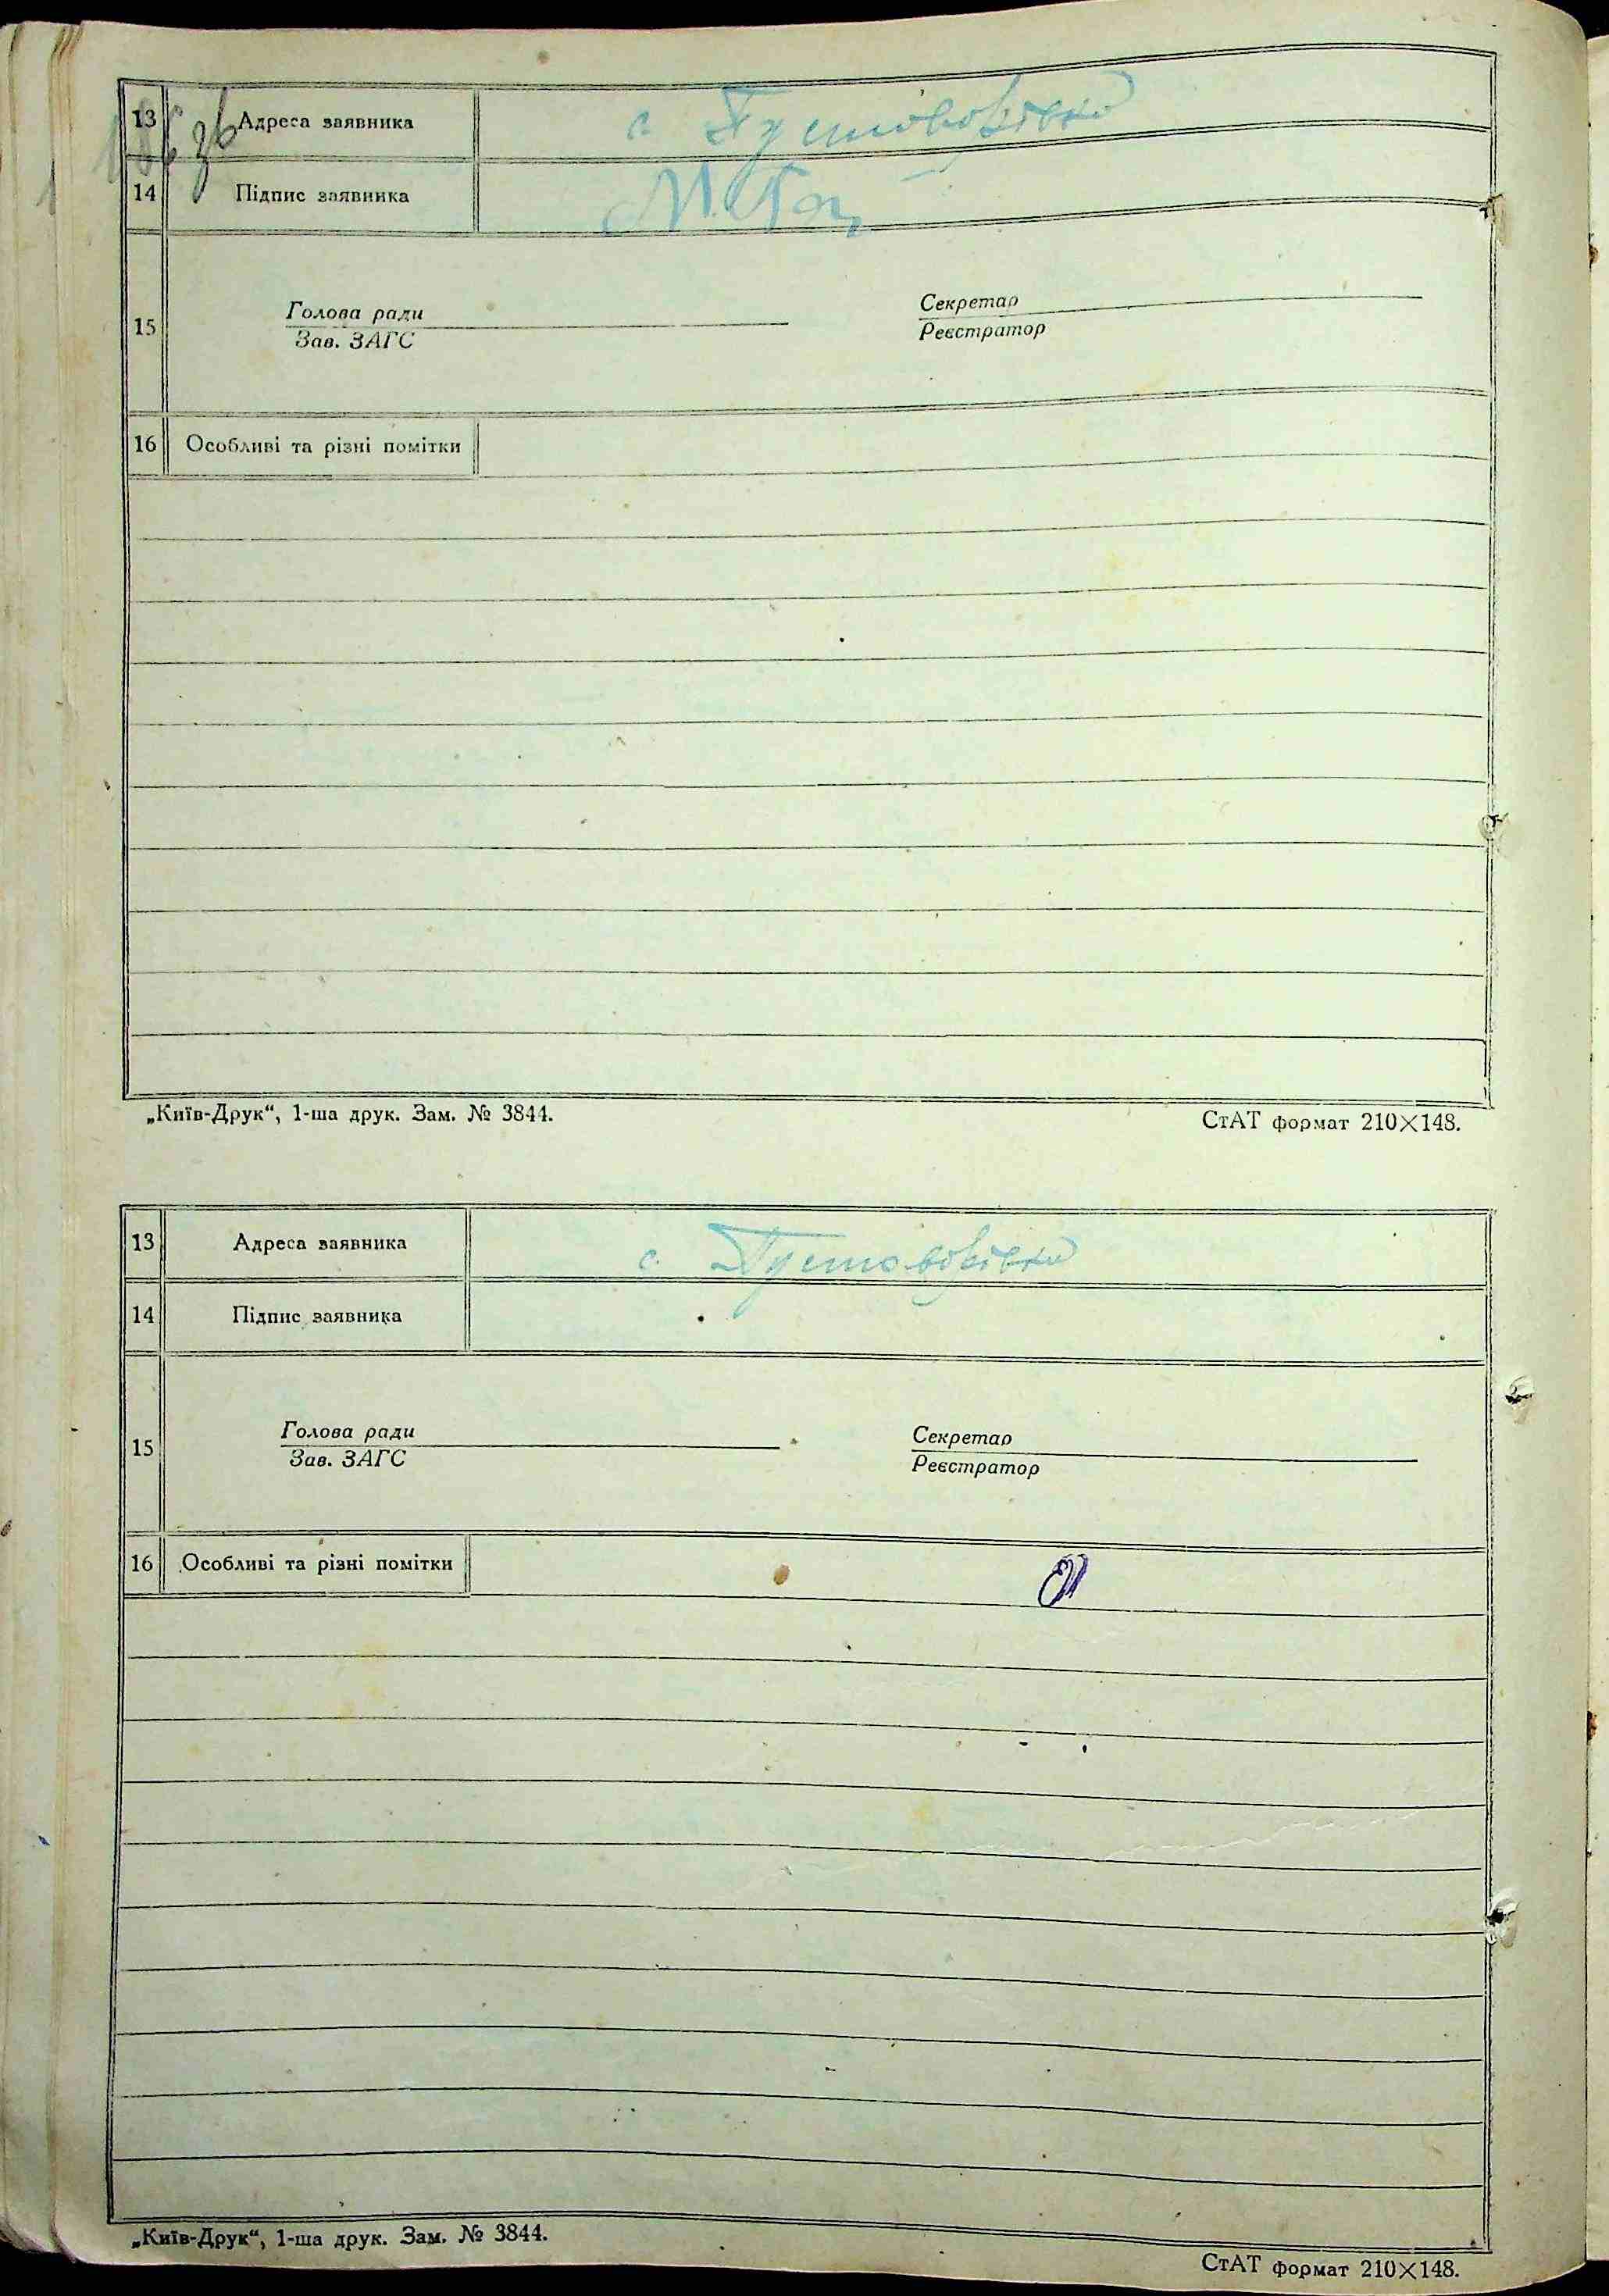 13 Адреса заявника с. Пустоварівка
14 Підпис заявника
15 Голова ради Секретар
Зав. ЗАГС Реєстратор
16 Особливі та різні помітки
„Київ-Друк“, 1-ша друк. Зам. № 3844. СтАТ формат 210×148.
13 Адреса заявника с. Пустоварівка
14 Підпис заявника
15 Голова ради Секретар
Зав. ЗАГС Реєстратор
16 Особливі та різні помітки
„Київ-Друк“, 1-ша друк. Зам. № 3844.
СтАТ формат 210×148.